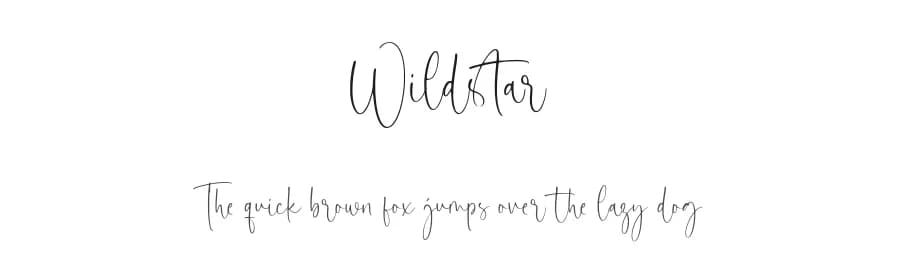 Wildstar
The quick brown fox jumps over the lazy dog